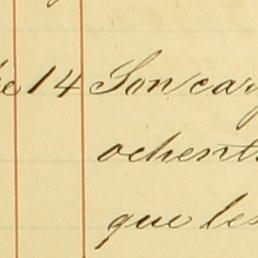 14 Son car
ochent
que les